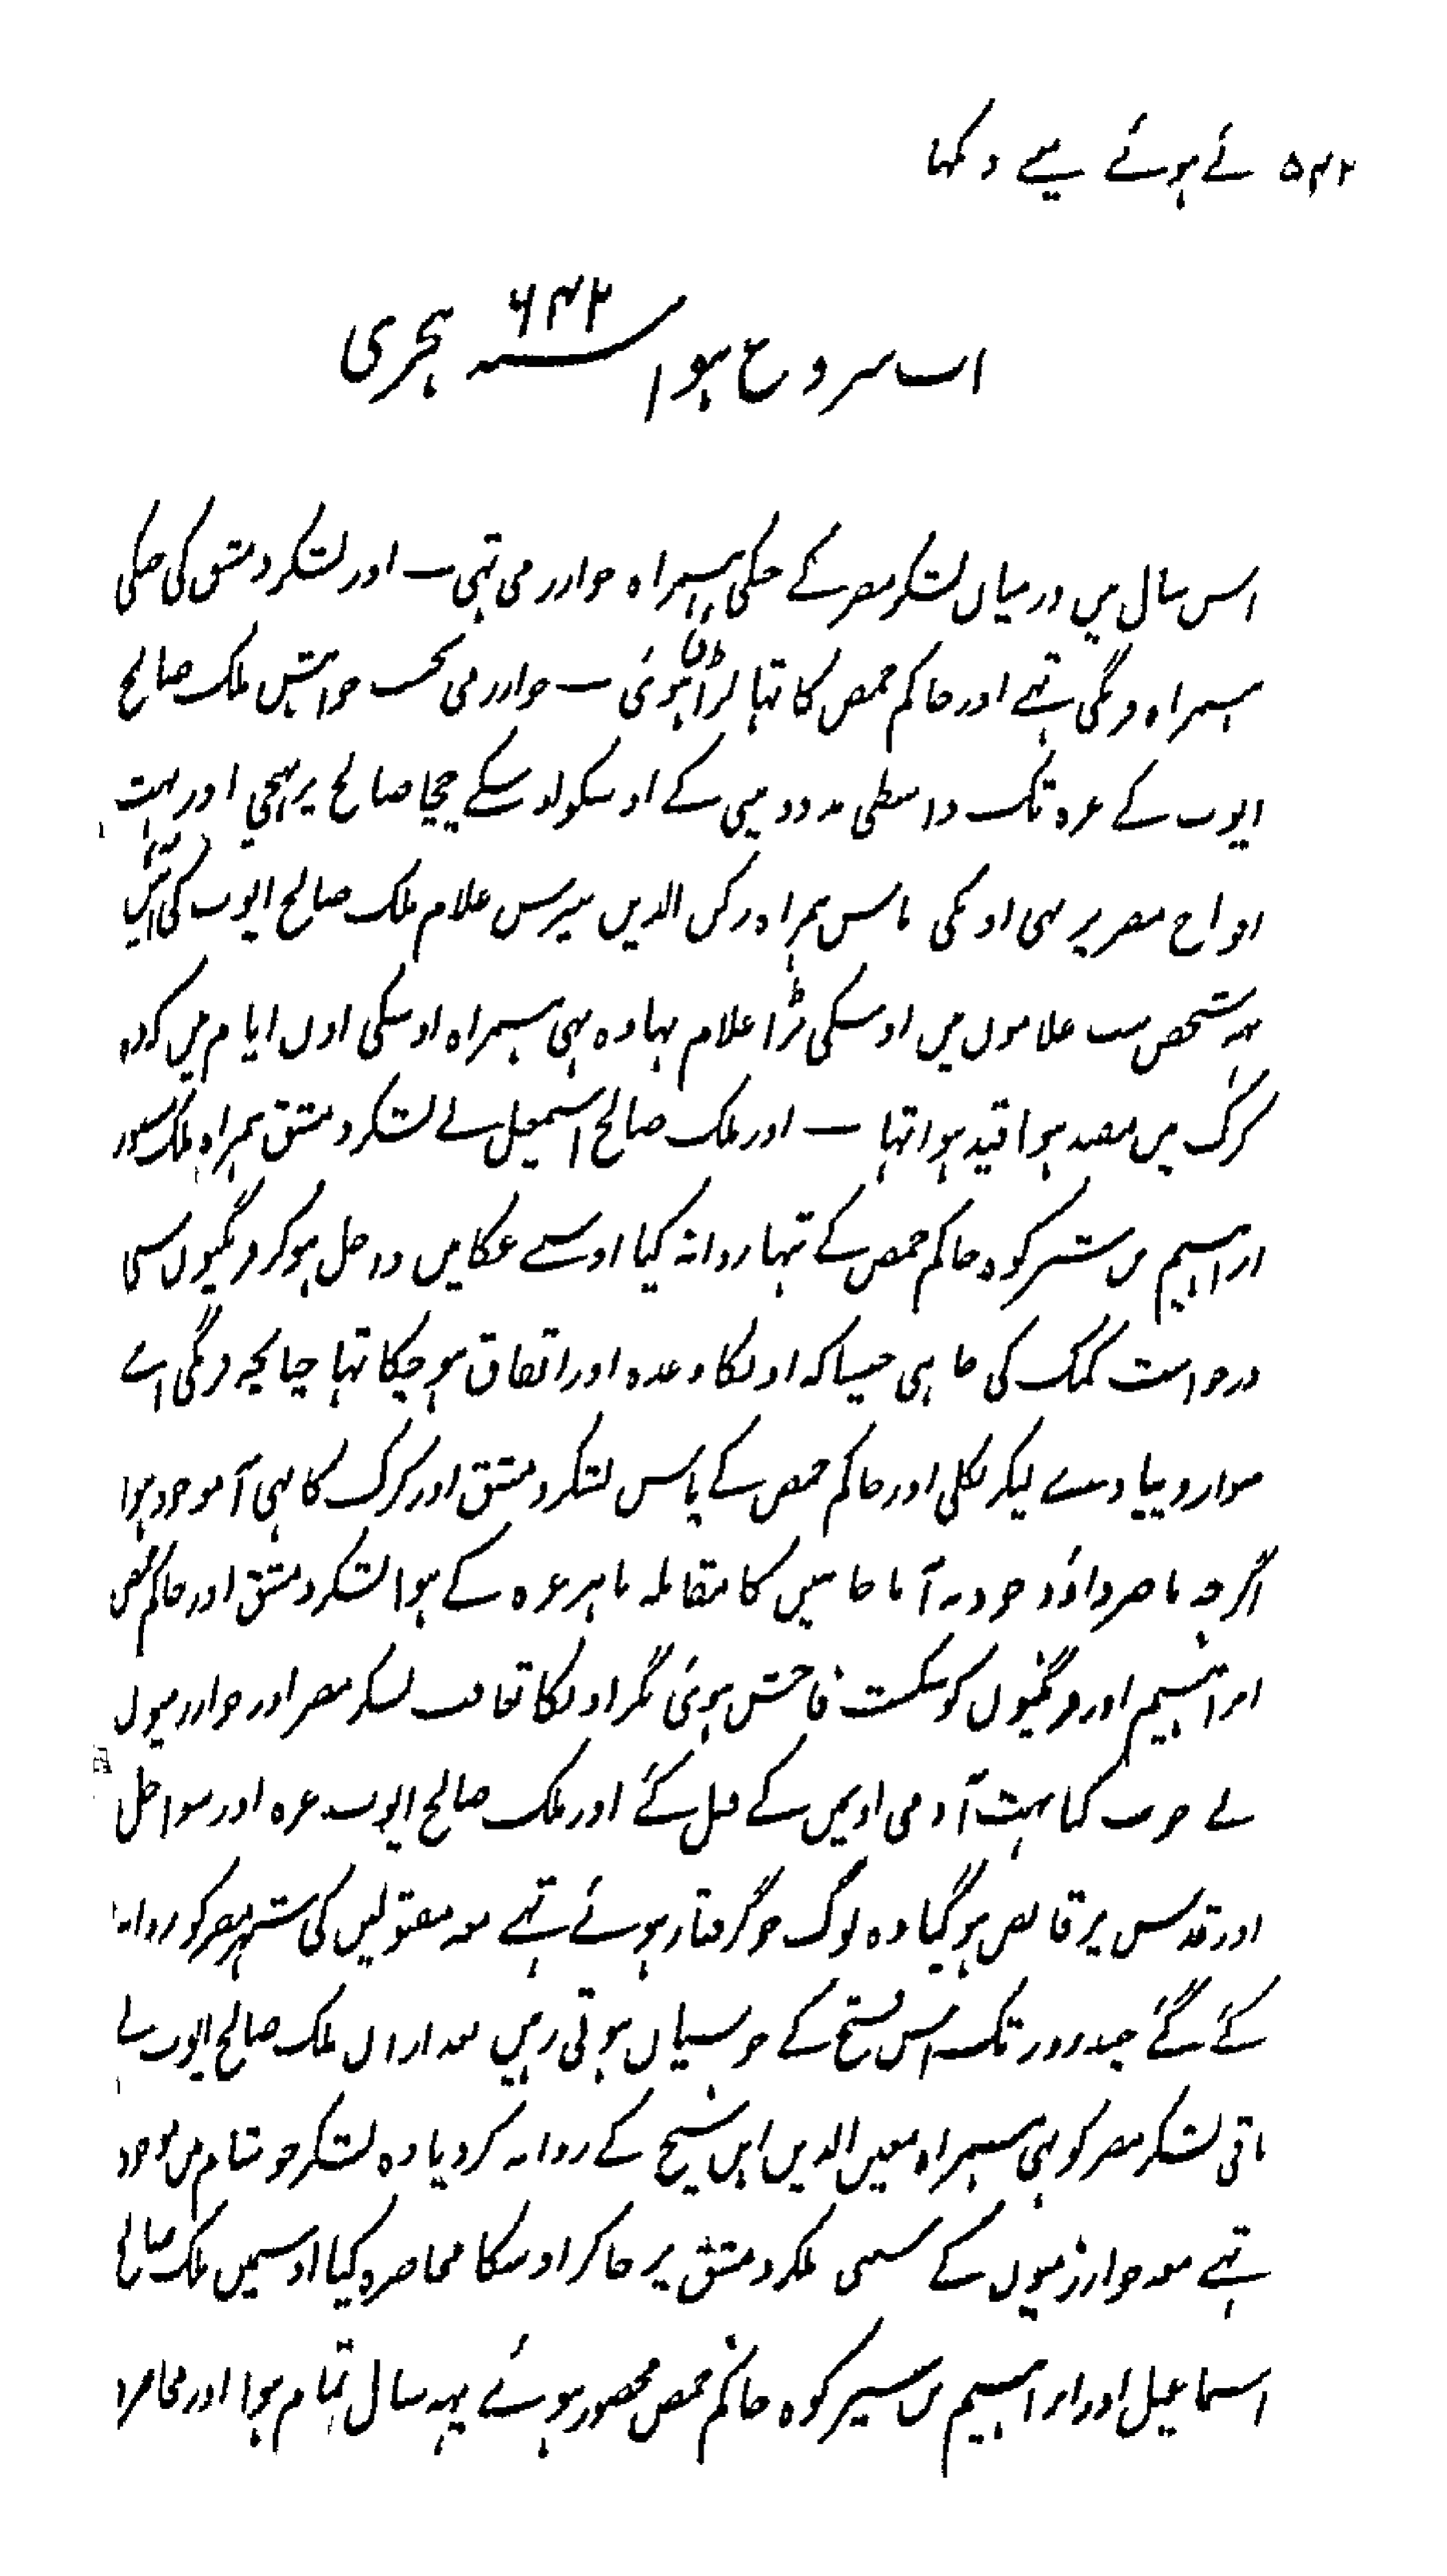 ۵۴۲ ئے ہوئے میے دکہا
اب سروع ہوا سنہ ۶۴۲ ہجری
اس سال میں درمیاں لشکر مصر کے جنکی ہمراہ حوارزمی تہی ۔ اور لشکر دمشق کی جنکی
ہمراہ فرنگی تہے اور حاکم حمص کا تہا لڑائی ہوئی ۔ حوارزمی بحسب خواہش ملک صالح
ایوب کے غزہ تک واسطی مدد دینی کے اوسکو اوسکے چچا صالح پر پہنچی اور بہت
افواج مصر پر بہی اونکی پاس ہمراہ رکن الدین بیبرس غلام ملک صالح ایوب کی آئیں
یہہ شخص سب غلاموں میں اوسکی بڑا غلام تہا وہ بہی ہمراہ اوسکی اول ایام میں کہ وہ
کرک میں مقید ہوا قید ہوا تہا ۔ اور ملک صالح اسمعیل نے لشکر دمشق ہمراہ ملک منصور
ابراہیم بن شیرکوہ حاکم حمص کے تہا روانہ کیا اوسے عکا میں داخل ہوکر فرنگیوں سی
درخواست کمک کی چاہی جیسا کہ اونکا وعدہ اور اتفاق ہو چکا تہا چنانچہ فرنگی اپنے
سوار و پیادے لیکر نکلی اور حاکم حمص کے پاس لشکر دمشق اور کرک کا بہی آ موجود ہوا
اگرچہ ناصر داؤد خود نہ آیا جانبین کا مقابلہ باہر غزہ کے ہوا لشکر دمشق اور حاکم حمص
ابراہیم اور فرنگیوں کو شکست فاحش ہوئی مگر اونکا تعاقب لشکر مصر اور حوارزمیوں
نے خوب کیا بہت آدمی اونمیں کے قتل کئے اور ملک صالح ایوب غزہ اور سواحل
اور قدس پر قابض ہو گیا وہ لوگ جو گرفتار ہوئے تہے معہ مقتولین کی شہر مصر کو روانہ
کئے گئے چند روز تک اس فتح کے خوشیاں ہوتی رہیں بعد ازاں ملک صالح ایوب نے
باقی لشکر مصر کو بہی ہمراہ معین الدین ابن شیخ کے روانہ کردیا وہ لشکر جو شام میں موجود
تہے معہ حوارزمیوں کے سبہی ملکر دمشق پر جاکر اوسکا محاصرہ کیا اوسمیں ملک صالح
اسماعیل اور ابراہیم بن شیرکوہ حاکم حمص محصور ہوئے یہہ سال تمام ہوا اور محاصرہ